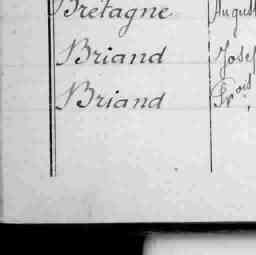 Bretagne August
Briand Josef
Briand Frois